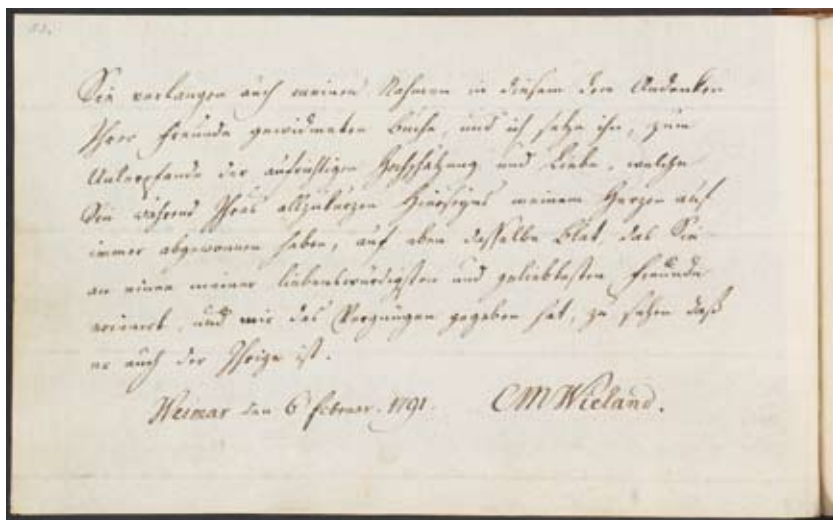 Sie verlangen auch meinen Nahmen in diesem dem Andenken
Ihrer Freunde gewidmeten Buche, und ich setze ihn, zum
Unterpfande der aufrichtigen Hochschätzung und Liebe, welche
Sie während Ihres allzukurzen Hierseyns meinem Herzen auf
immer abgewonnen haben, auf eben dasselbe Blat, das Sie
an einen meiner liebenswürdigsten und geliebtesten Freunde
erinnert, und mir das Vergnügen gegeben hat, zu sehen daß
er auch der Ihrige ist.
Weimar den 6 Februar. 1791. CMWieland.